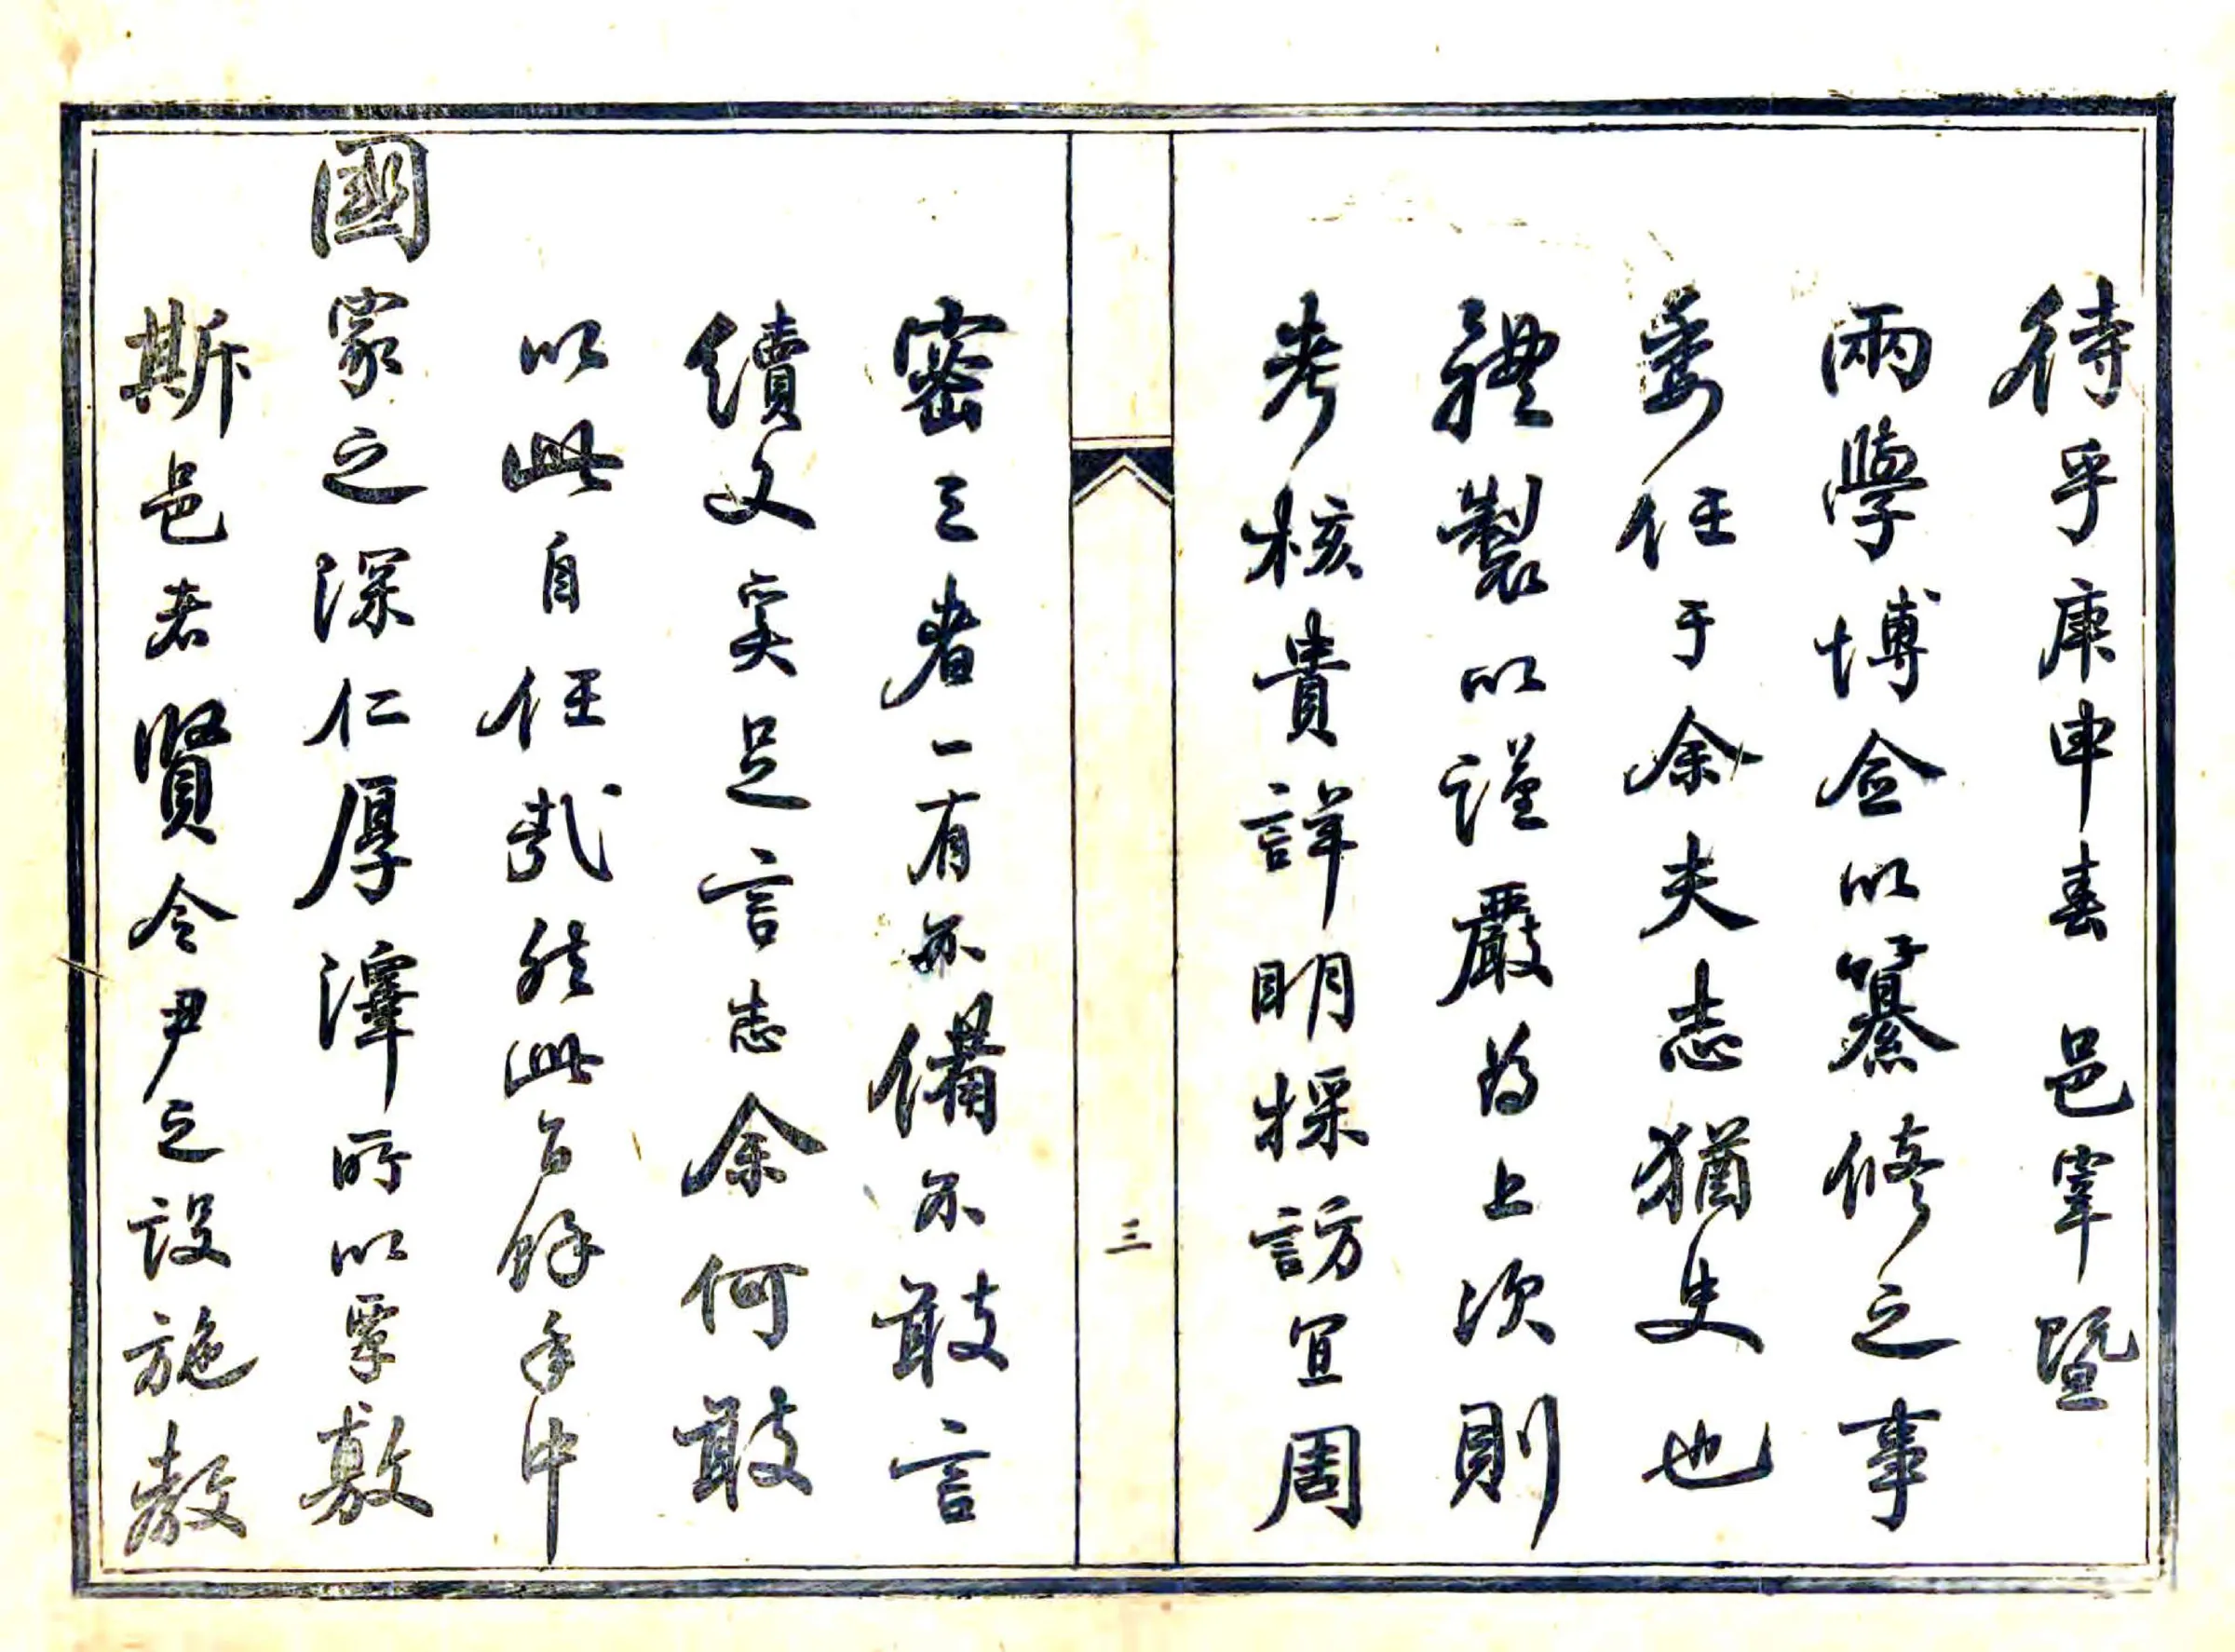 待乎庚申春邑宰暨
兩學博僉以纂修之事
委任于余夫志猶史也
體製以謹嚴為上次則
考核貴詳明採訪宜周
三
密三者一有不備不敢言
續文奚足言志余何敢
以此自任哉然此百餘年中
國家之深仁厚澤所以覃敷
斯邑者賢令尹之設施教